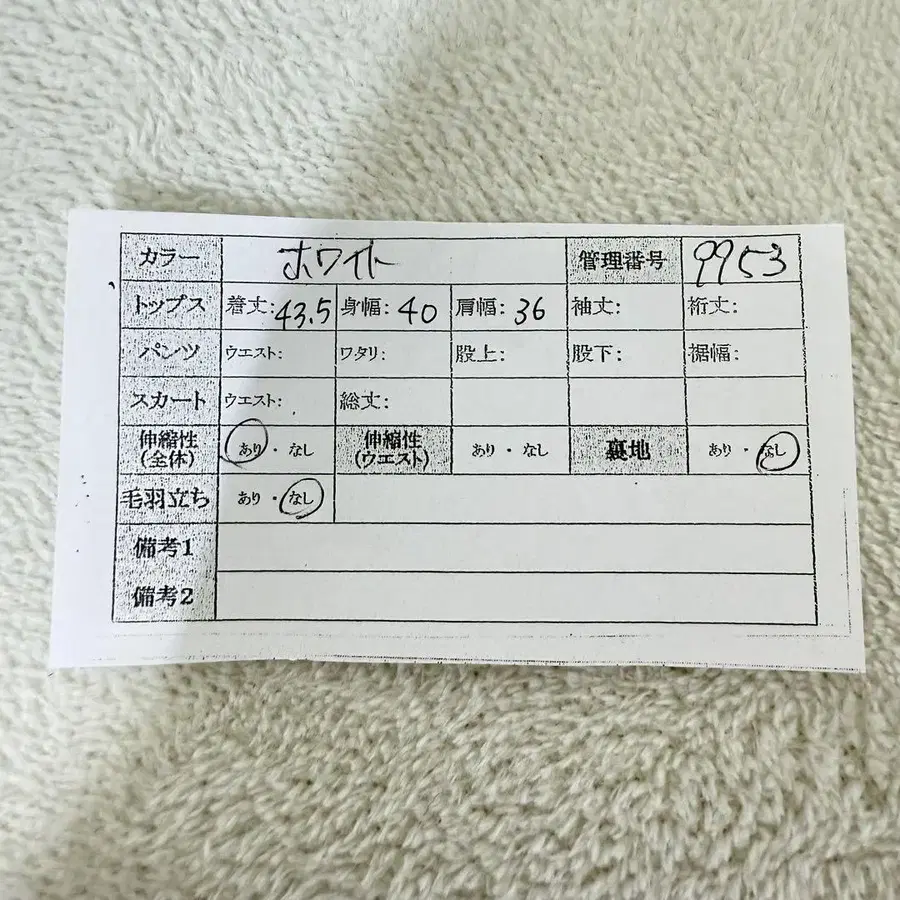 カラー ホワイト 管理番号 9953
トップス 着丈:43.5 身幅:40 肩幅:36 袖丈: 裄丈:
パンツ ウエスト: ワタリ: 股上: 股下: 裾幅:
スカート ウエスト: 総丈:
伸縮性(全体) あり・なし 伸縮性(ウエスト) あり・なし 裏地 あり・なし
毛羽立ち あり・なし
備考1
備考2